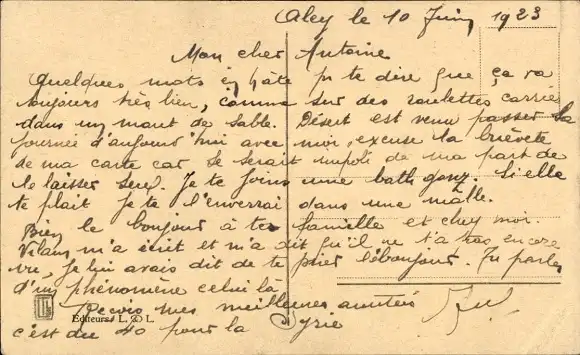 Aley le 10 Juin 1923
Mon cher Antoine
Quelques mots en hâte p te dire que ça va
toujours très bien, comme sur des roulettes carrées
dans un mont de sable. Désert est venu passer la
journée d'aujourd'hui avec moi, excuse la brièveté
de ma carte car se serait impoli de ma part de
le laisser seul. Je te joins une bath gonz. Si elle
te plait je te l'enverrai dans une malle.
Bien le bonjour à ta famille et chez moi.
Vilain m'a écrit et m'a dit qu'il ne t'a pas encore
vu, je lui avais dit de te prier le bonjour. Tu parles
d'un phénomène celui là
Reçois mes meilleures amitiés
c'est du 40 pour la Syrie
Editeurs L. & L.